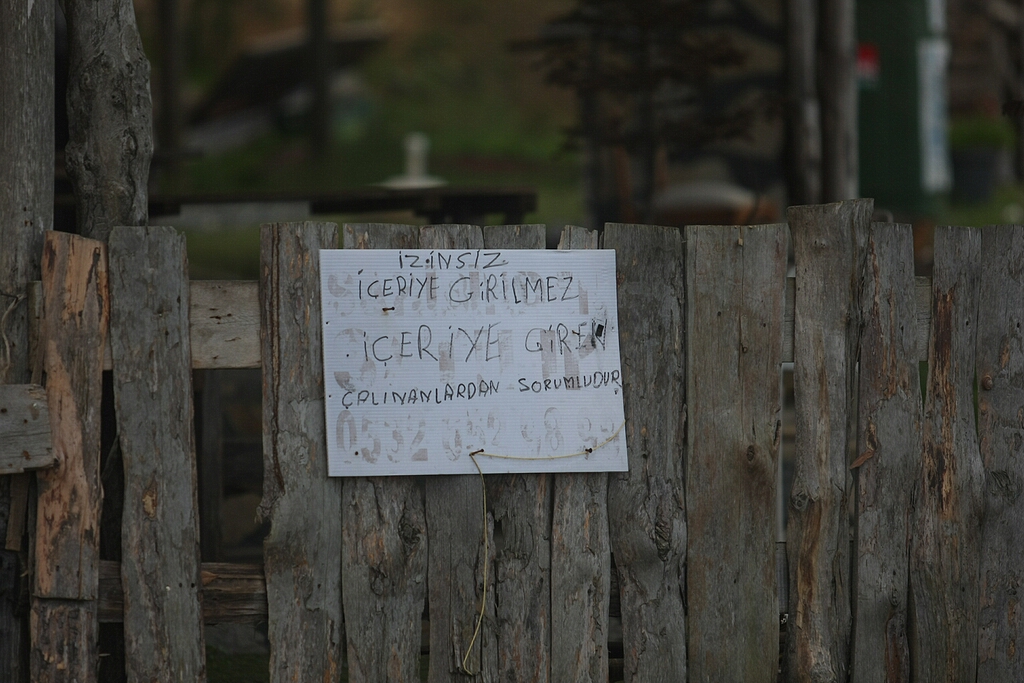 İZİNSİZ
İÇERİYE GİRİLMEZ
İÇERİYE GİREN
ÇALINANLARDAN SORUMLUDUR
0532